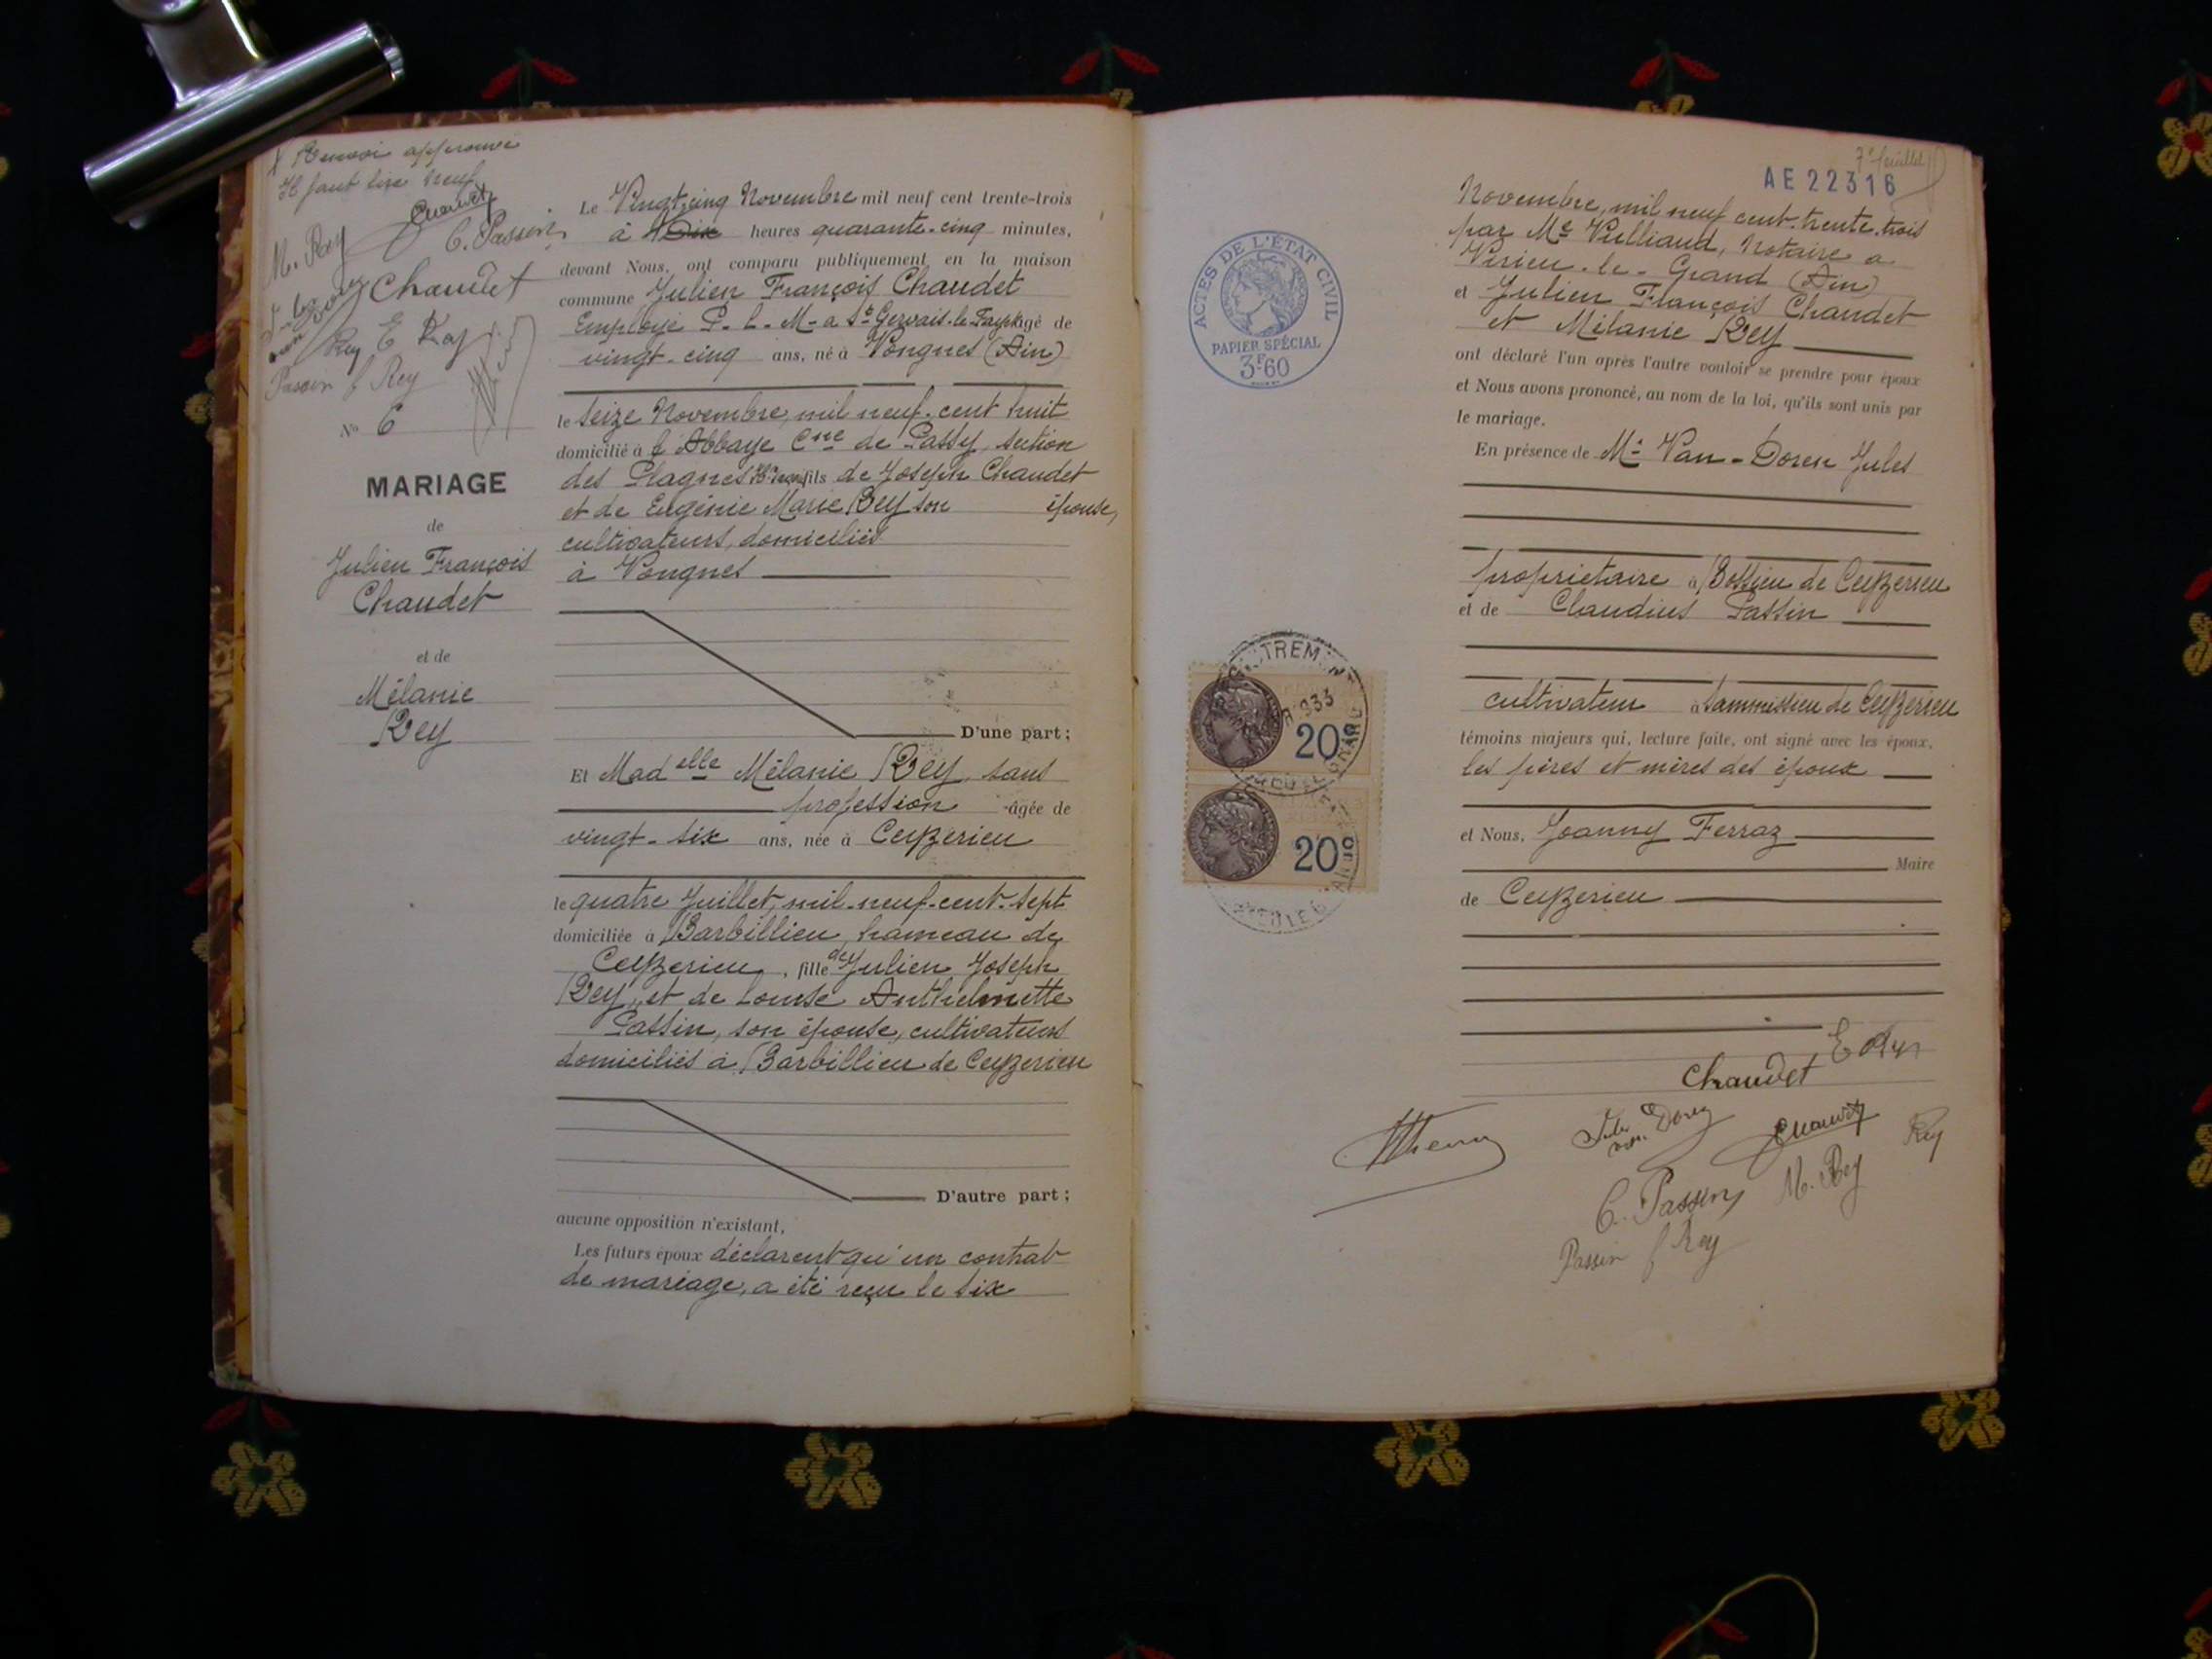 Renvoi approuvé
Il faut lire neuf
Chaudet
M. Rey
C. Passin
Chaudet
Rey E Rey
Passin f Rey
No 6
MARIAGE
de
Julien François
Chaudet
et de
Mélanie
Rey
Le Vingt cinq Novembre mil neuf cent trente-trois
à Dix heures quarante-cinq minutes,
devant Nous, ont comparu publiquement en la maison
commune Julien François Chaudet
Employé P-L-M- à St Gervais-le-Fayet âgé de
vingt-cinq ans, né à Vongnes (Ain)
le seize Novembre, mil neuf-cent huit
domicilié à l'Abbaye Cne de Passy, section
des Plagnes fils de Joseph Chaudet
et de Eugénie Marie Rey son épouse,
cultivateurs, domiciliés
à Vongnes
D'une part;
Et Madelle Mélanie Rey, sans
profession âgée de
vingt-six ans, née à Ceyzerieu
le quatre Juillet, mil-neuf-cent-sept
domiciliée à Barbillieu, hameau de
Ceyzerieu, fille de Julien Joseph
Rey, et de Louise Anthelmette
Passin, son épouse, cultivateurs
domiciliés à Barbillieu de Ceyzerieu
D'autre part;
aucune opposition n'existant,
Les futurs époux déclarent qu'un contrat
de mariage, a été reçu le six
7e feuillet
AE 22316
Novembre, mil neuf cent-trente-trois
par Me Vulliaud, Notaire a
Virieu-le-Grand (Ain)
et Julien François Chaudet
et Mélanie Rey
ont déclaré l'un après l'autre vouloir se prendre pour époux
et Nous avons prononcé, au nom de la loi, qu'ils sont unis par
le mariage.
En présence de Mr Van-Doren Jules
propriétaire à Bossieu de Ceyzerieu
et de Claudius Passin
cultivateur à Sammissieu de Ceyzerieu
témoins majeurs qui, lecture faite, ont signé avec les époux,
les pères et mères des époux
et Nous, Joanny Ferraz
Maire
de Ceyzerieu
Chaudet
Chaudet
Rey
C. Passin
M. Rey
Passin f Rey
ACTES DE L'ÉTAT CIVIL
PAPIER SPÉCIAL
3F60
1933
20
20